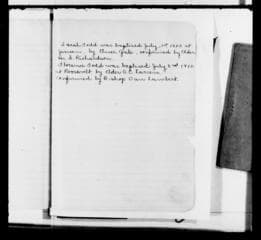 Sarah Todd was baptised July 1st 1905 at
by Oliver Gale, confirmed by Elder
S. Richardson
Florence Todd was baptised July 2nd 1910
at Roosevelt by Elder C. C. Larsen
confirmed by Bishop Dan Lambert